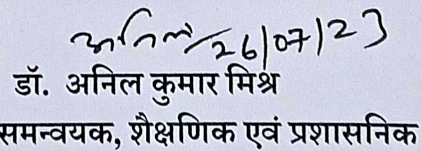 अनिल 26/07/23
डॉ. अनिल कुमार मिश्र
समन्वयक, शैक्षणिक एवं प्रशासनिक